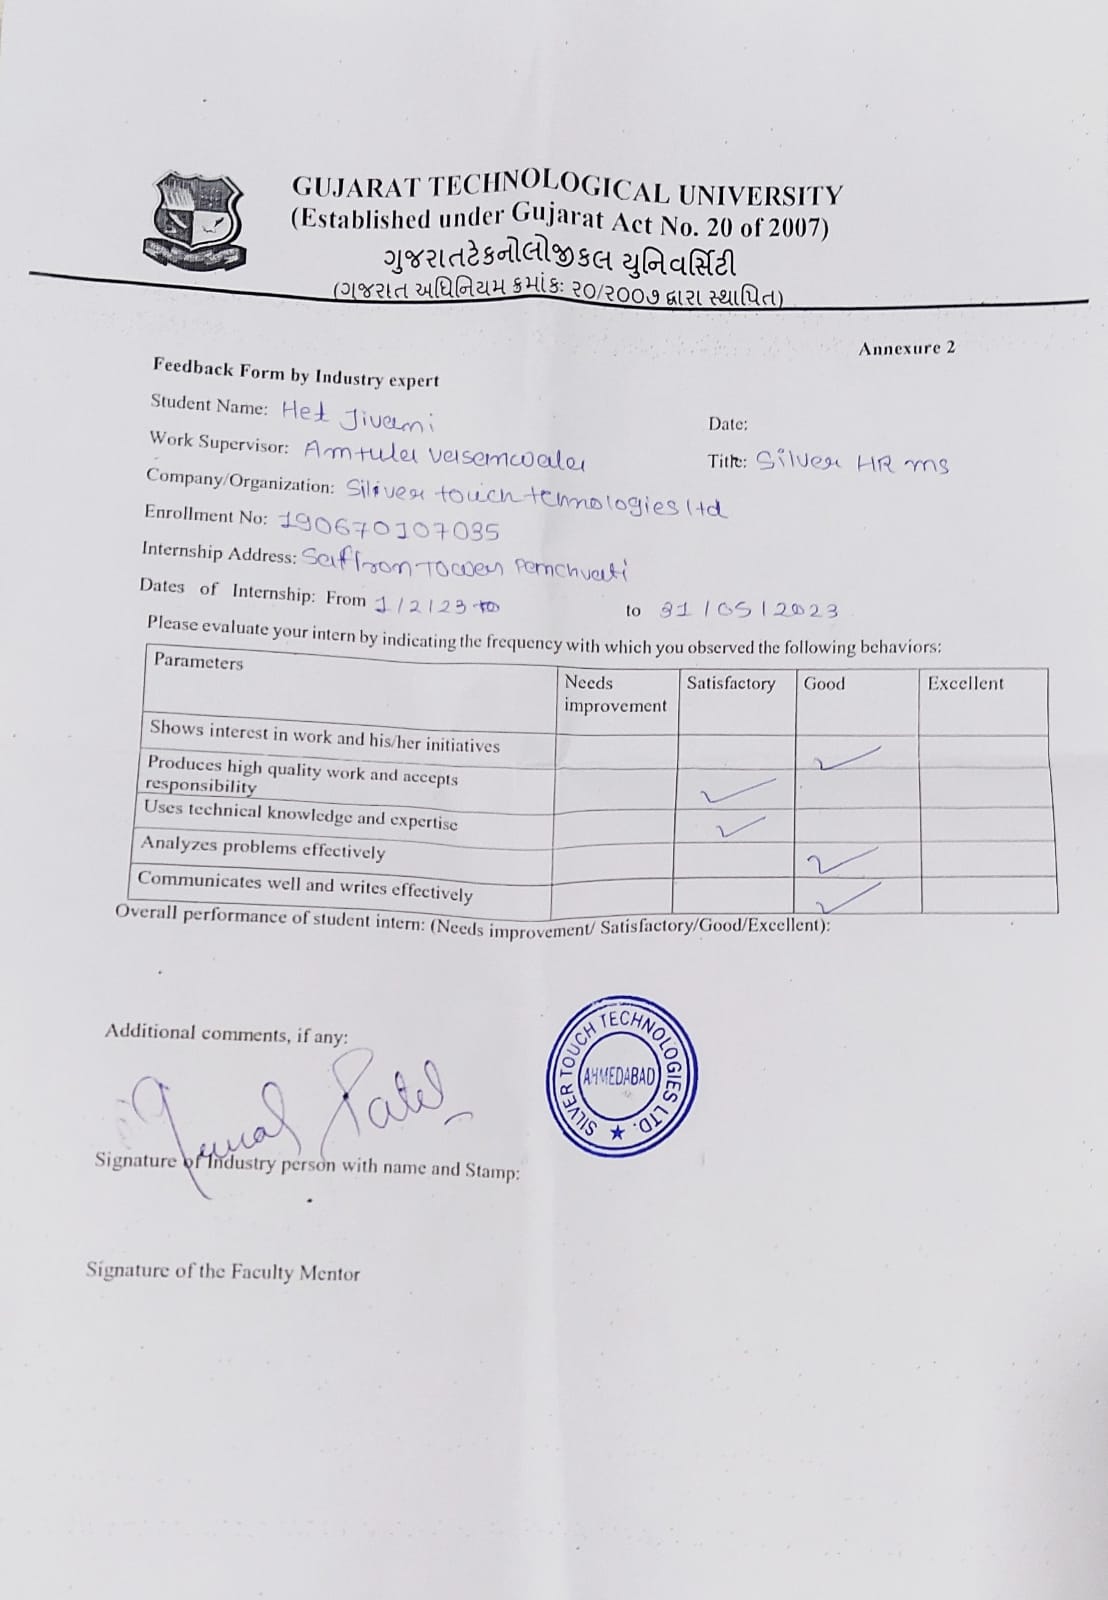 GUJARAT TECHNOLOGICAL UNIVERSITY
(Established under Gujarat Act No. 20 of 2007)
ગુજરાતટેકનોલોજીકલ યુનિવર્સિટી
(ગુજરાત અધિનિયમ ક્રમાંકઃ ૨૦/૨૦૦૭ દ્વારા સ્થાપિત)
Annexure 2
Feedback Form by Industry expert
Student Name: Het Jivani
Date:
Work Supervisor: Amtula
Title: Silver HR ms
Company/Organization: Siliver touch technologies ltd
Enrollment No: 190670107035
Internship Address: Saffron Tower Panchvati
Dates of Internship: From 1/2/23 to
to 31/05/2023
Please evaluate your intern by indicating the frequency with which you observed the following behaviors:
Parameters
Needs improvement
Satisfactory
Good
Excellent
Shows interest in work and his/her initiatives
Produces high quality work and accepts
responsibility
Uses technical knowledge and expertise
Analyzes problems effectively
Communicates well and writes effectively
Overall performance of student intern: (Needs improvement/ Satisfactory/Good/Excellent):
Additional comments, if any:
SILVER TOUCH TECHNOLOGIES LTD.
AHMEDABAD
Patel
Signature of Industry person with name and Stamp:
Signature of the Faculty Mentor